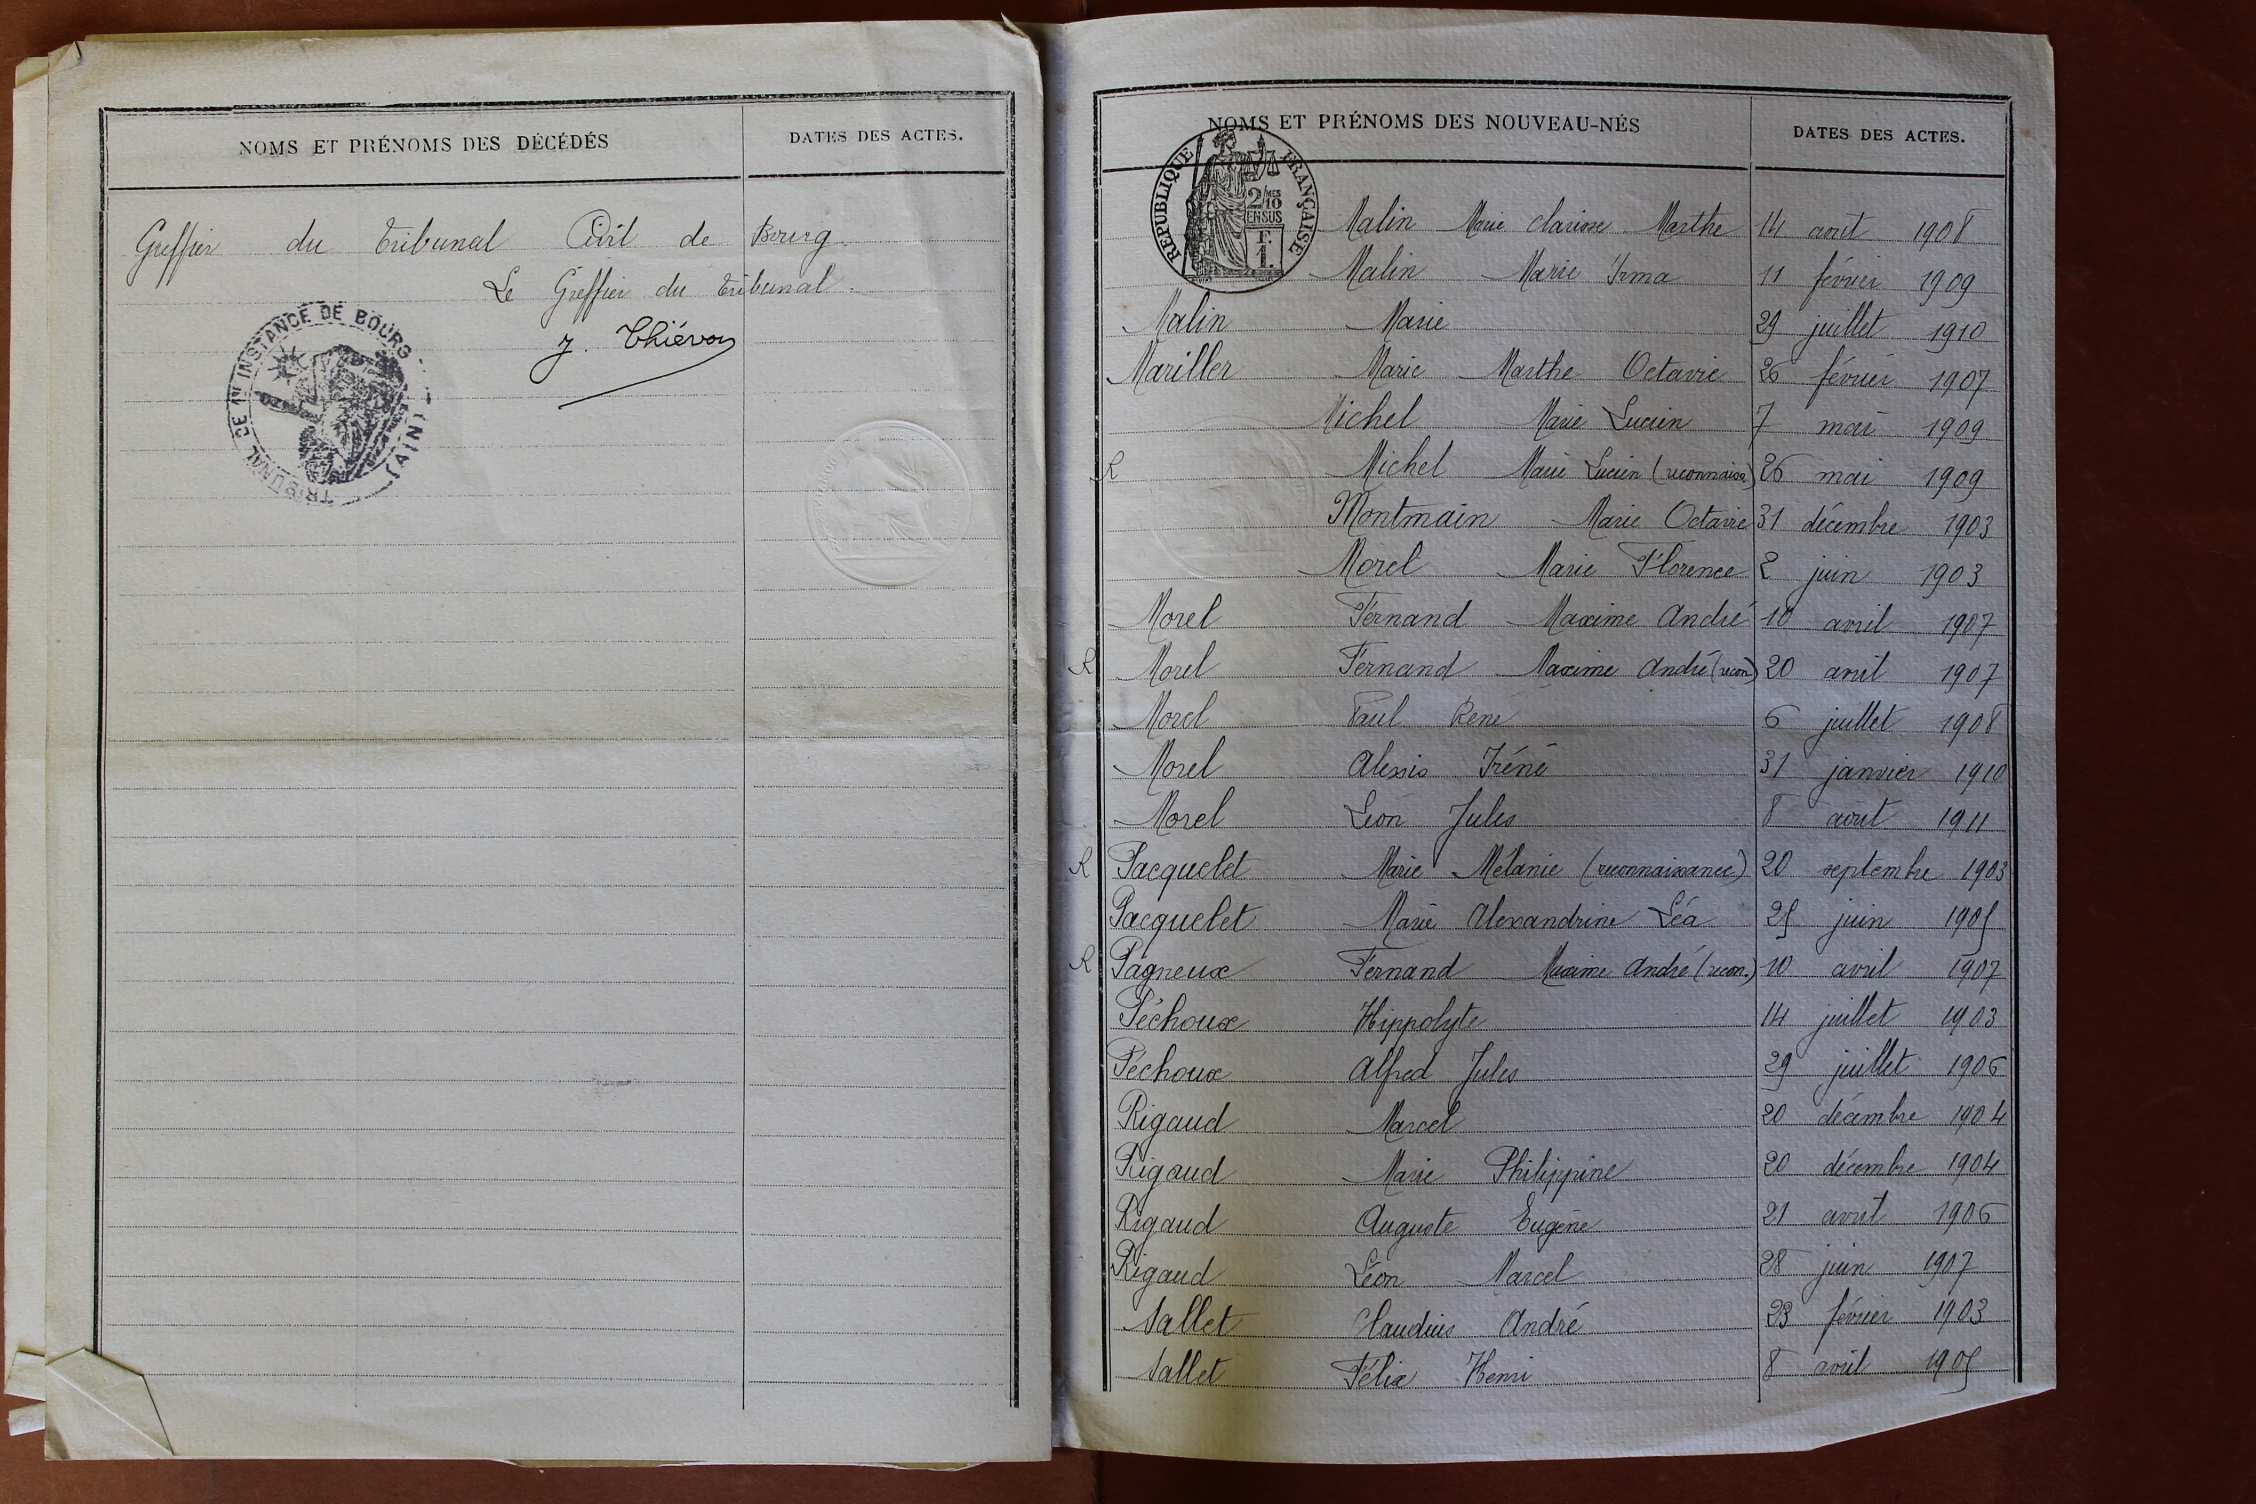 NOMS ET PRÉNOMS DES DÉCÉDÉS DATES DES ACTES.
Greffier du tribunal Civil de Bourg.
Le Greffier du tribunal.
J. Thiévon
TRIBUNAL DE 1re INSTANCE DE BOURG (AIN)
NOMS ET PRÉNOMS DES NOUVEAU-NÉS DATES DES ACTES.
RÉPUBLIQUE FRANÇAISE
2/10 MES
EN SUS
F.
1.
Malin Marie Clarisse Marthe 14 août 1908
Malin Marie Irma 11 février 1909
Malin Marie 29 juillet 1910
Mariller Marie Marthe Octavie 26 février 1907
Michel Marie Lucien 7 mai 1909
R Michel Marie Lucien (reconnaiss.) 26 mai 1909
Montmain Marie Octavie 31 décembre 1903
Morel Marie Florence 2 juin 1903
Morel Fernand Maxime André 10 avril 1907
R Morel Fernand Maxime André (recon.) 20 avril 1907
Morel Paul René 6 juillet 1908
Morel Alexis Iréné 31 janvier 1910
Morel Léon Jules 8 août 1911
R Pacquelet Marie Mélanie (reconnaissance) 20 septembre 1903
Pacquelet Marie Alexandrine Léa 25 juin 1905
R Pagneux Fernand Maxime André (recon.) 10 avril 1907
Péchoux Hippolyte 14 juillet 1903
Péchoux Alfred Jules 29 juillet 1906
Rigaud Marcel 20 décembre 1904
Rigaud Marie Philippine 20 décembre 1904
Rigaud Auguste Eugène 21 avril 1906
Rigaud Léon Marcel 28 juin 1907
Sallet Claudius André 23 février 1903
Sallet Félix Henri 8 avril 1905